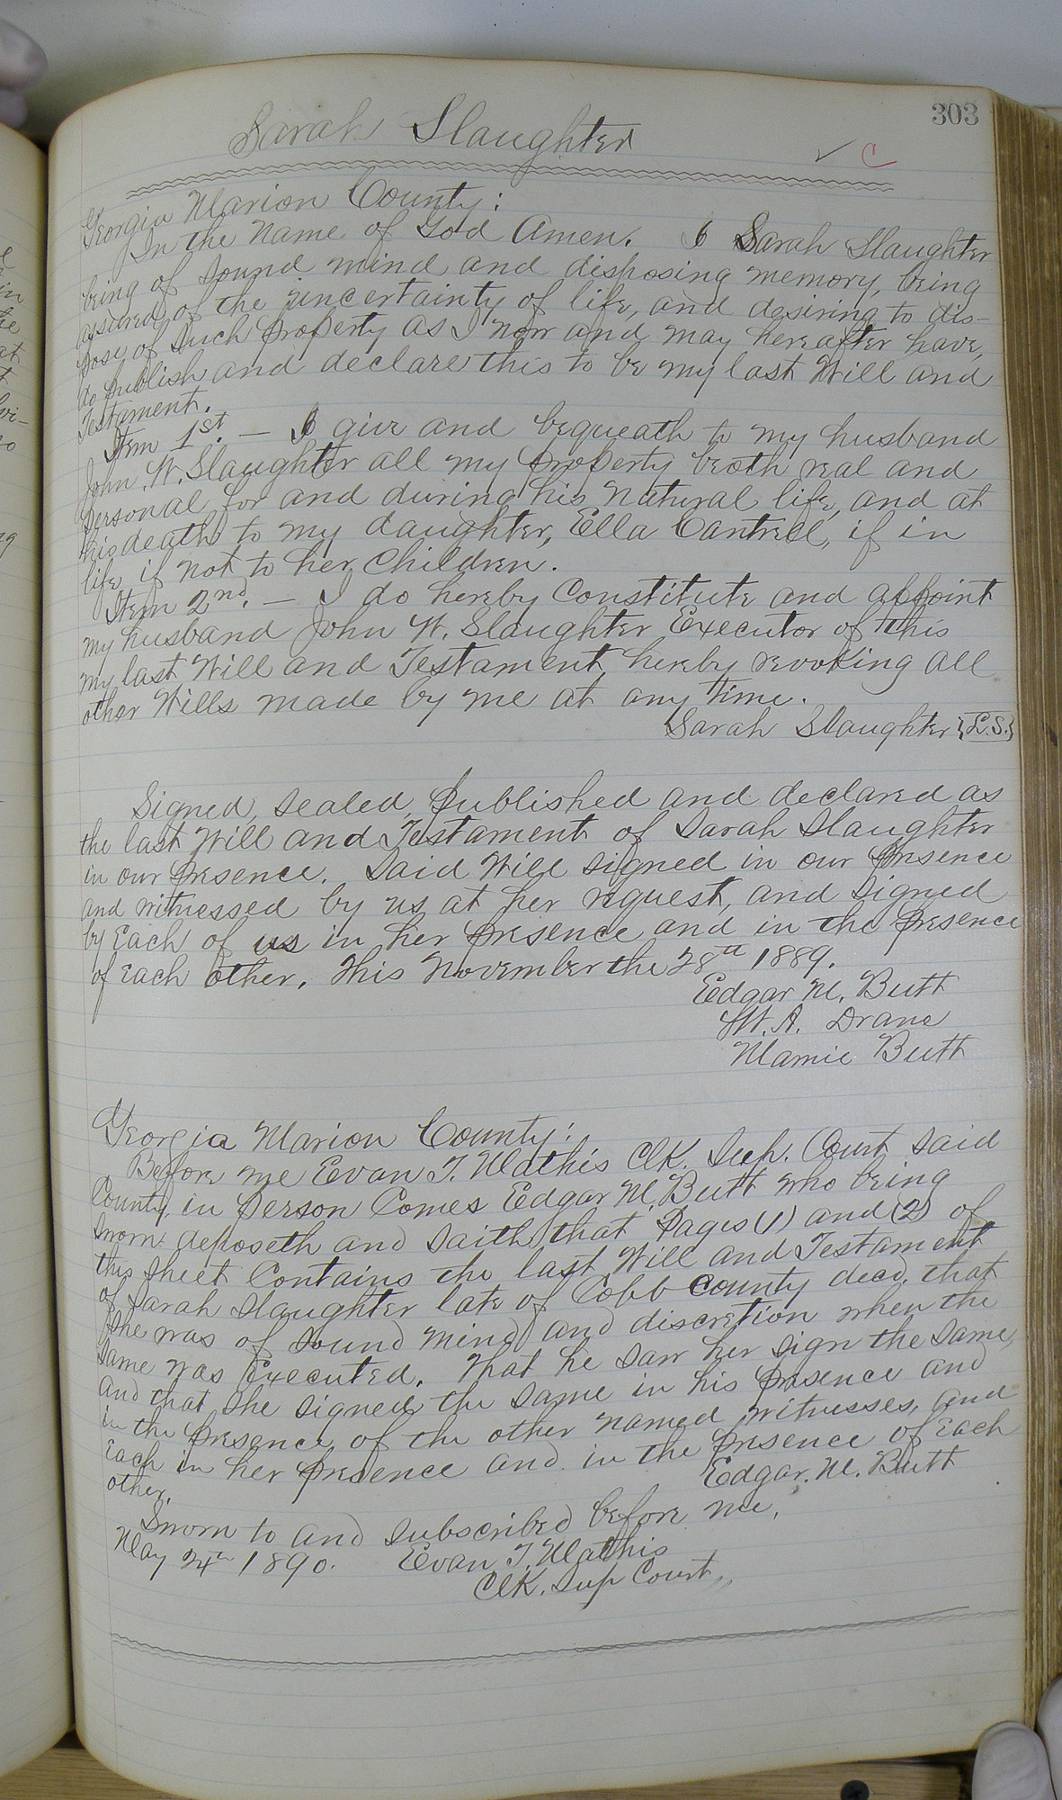 303
Sarah Slaughter
✓ C
Georgia Marion County:
In the Name of God Amen. I Sarah Slaughter
being of sound mind and disposing memory, being
assured of the uncertainty of life, and desiring to dis-
pose of such property as I now and may hereafter have,
do publish and declare this to be my last Will and
Testament.
Item 1st. — I give and bequeath to my husband
John. W. Slaughter all my property both real and
personal for and during his natural life, and at
his death to my daughter, Ella Cantrell, if in
life, if not to her Children.
Item 2nd. — I do hereby Constitute and appoint
my husband John W. Slaughter Executor of this
my last Will and Testament, hereby revoking all
other Wills made by me at any time.
Sarah Slaughter {L.S.}
Signed, sealed, published and declared as
the last Will and Testament of Sarah Slaughter
in our presence. Said Will signed in our presence
and witnessed by us at her request, and signed
by Each of us in her presence and in the presence
of each other. This November the 28th 1889.
Edgar M. Butt
W. A. Drane
Mamie Butt
Georgia Marion County:
Before me Evan T. Mathis Clk. Sup. Court said
County, in person Comes Edgar M. Butt who being
sworn deposeth and saith that Pages (1) and (2) of
this sheet Contains the last Will and Testament
of Sarah Slaughter late of Cobb County decd, that
she was of sound mind and discretion when the
same was Executed. That he saw her sign the same,
and that she signed the same in his presence and
in the presence of the other named witnesses, and
Each in her presence and in the presence of Each
other.
Edgar. M. Butt
Sworn to and subscribed before me,
May 24th 1890. Evan T. Mathis
Clk. Sup Court,